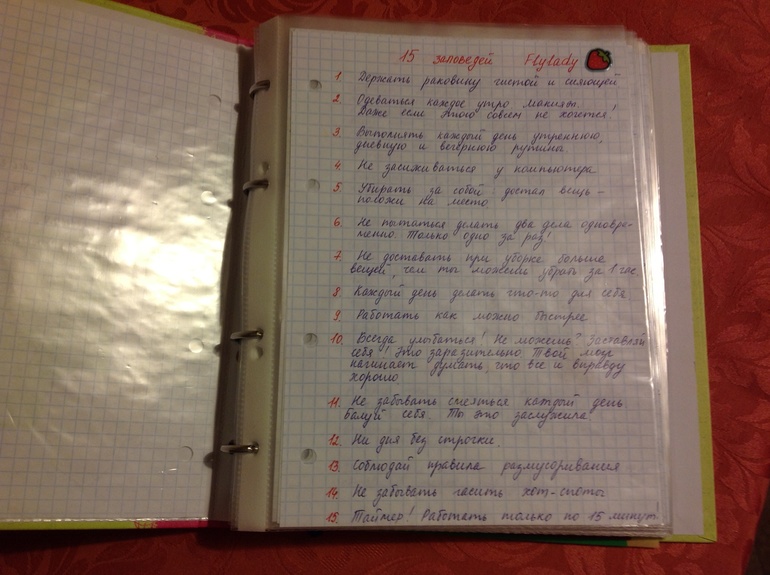 15 заповедей Flylady
1. Держать раковину чистой и сияющей
2. Одеваться каждое утро макияж.
Даже если этого совсем не хочется!
3. Выполнять каждый день утреннюю,
дневную и вечернюю рутины
4. Не засиживаться у компьютера
5. Убирать за собой. достал вещь –
положи на место
6. Не пытаться делать два дела одновре-
менно. Только одно за раз!
7. Не доставать при уборке больше
вещей, чем ты можешь убрать за 1 час
8. Каждый день делать что-то для себя
9. Работать как можно быстрее
10. Всегда улыбаться! Не можешь? Заставляй
себя! Это заразительно. Твой мозг
начинает думать, что все и вправду
хорошо
11. Не забывать смеяться каждый день
Балуй себя. Ты это заслужила.
12. Ни дня без строчки.
13. Соблюдай правила размусоривания
14. Не забывать гасить хот-споты
15. Таймер! Работать только по 15 минут